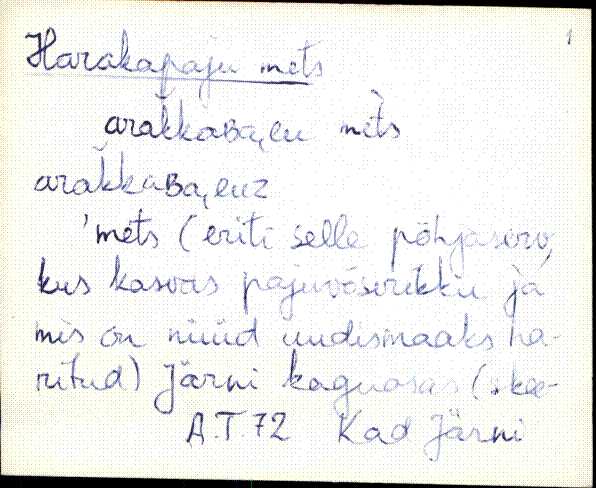 1
Harakapaju mets
arakkaʙa,ɪu mèts
arakkaʙa,ɪuz
'mets (eriti selle põhjaserv,
kus kasvas pajuvõserikku ja
mis on nüüd uudismaaks ha-
ritud) Järni kaguosas (:kee-
A.T.72 Kad Järni